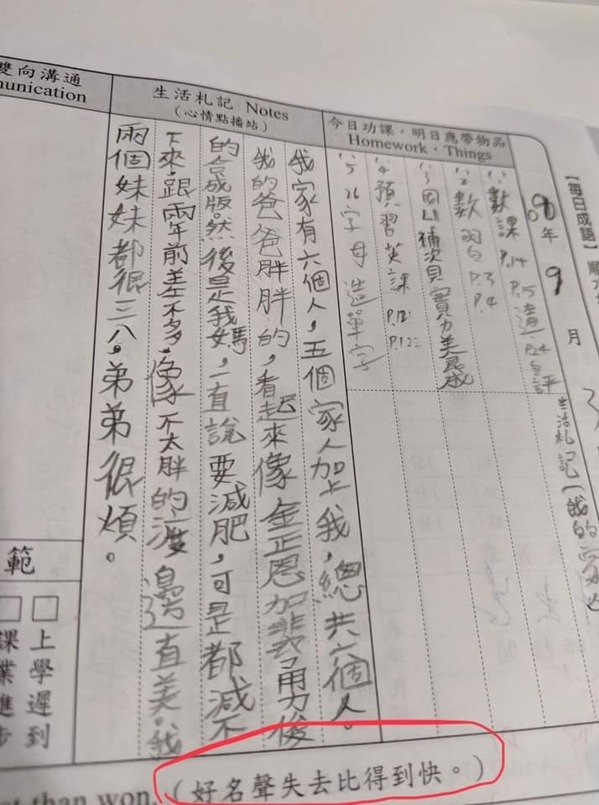 雙向溝通
munication
生活札記 Notes
(心情點播站)
今日功課・明日應帶物品
Homework・Things
【每日成語】
年 9 月
(1)數課 P.14 P.15
(2)數習 P.3 P.4
(4)預習英課 P.121 P.122
(5)26字母 造單字
生活札記(我的
我家有六個人,五個家人加上我,總共六個人。
我的爸爸胖胖的,看起來像金正恩加裴勇俊
的合成版。然後是我媽,一直說要減肥,可是都減不
下來,跟兩年前差不多,像不太胖的渡邊直美。我
兩個妹妹都很三八,弟弟很煩。
範
上學遲到
課業進步
st than won.(好名聲失去比得到快。)